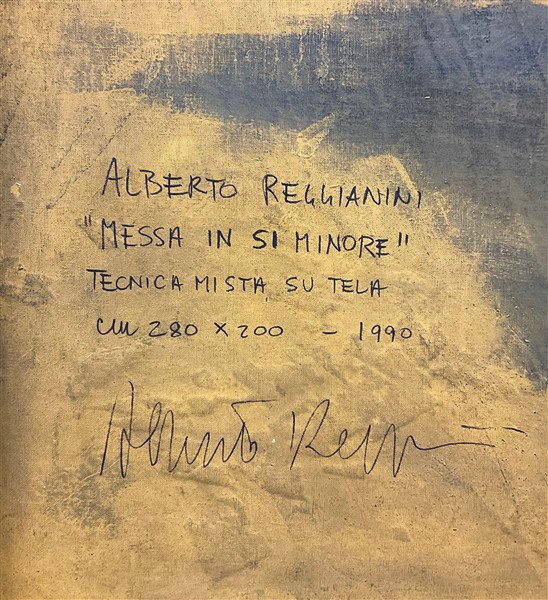 ALBERTO REGGIANINI
"MESSA IN SI MINORE"
TECNICA MISTA SU TELA
cm 280 x 200 - 1990
Alberto Regg